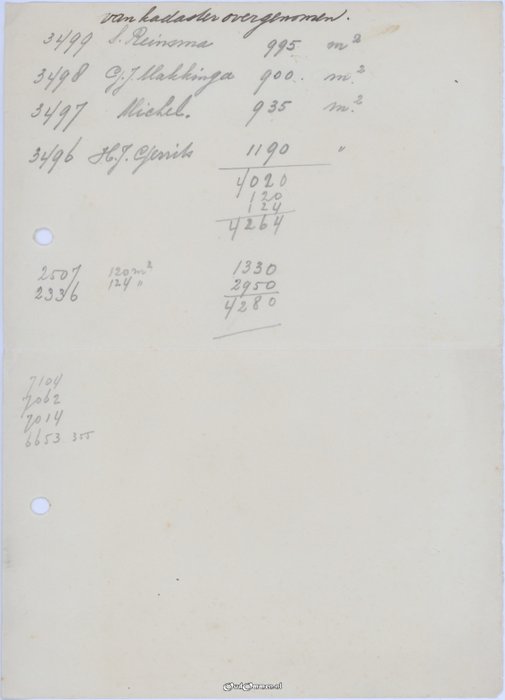 van kadaster overgenomen.
3499 S. Reinsma 995 m²
3498 G.J. Makkinga 900. m.²
3497 Michel. 935 m.²
3496 H.J. Gerrits 1190 "
4020
120
124
4264
2507 120 m² 1330
2336 124 " 2950
4280
7104
7062
7014
6653 355
OudOmmen.nl